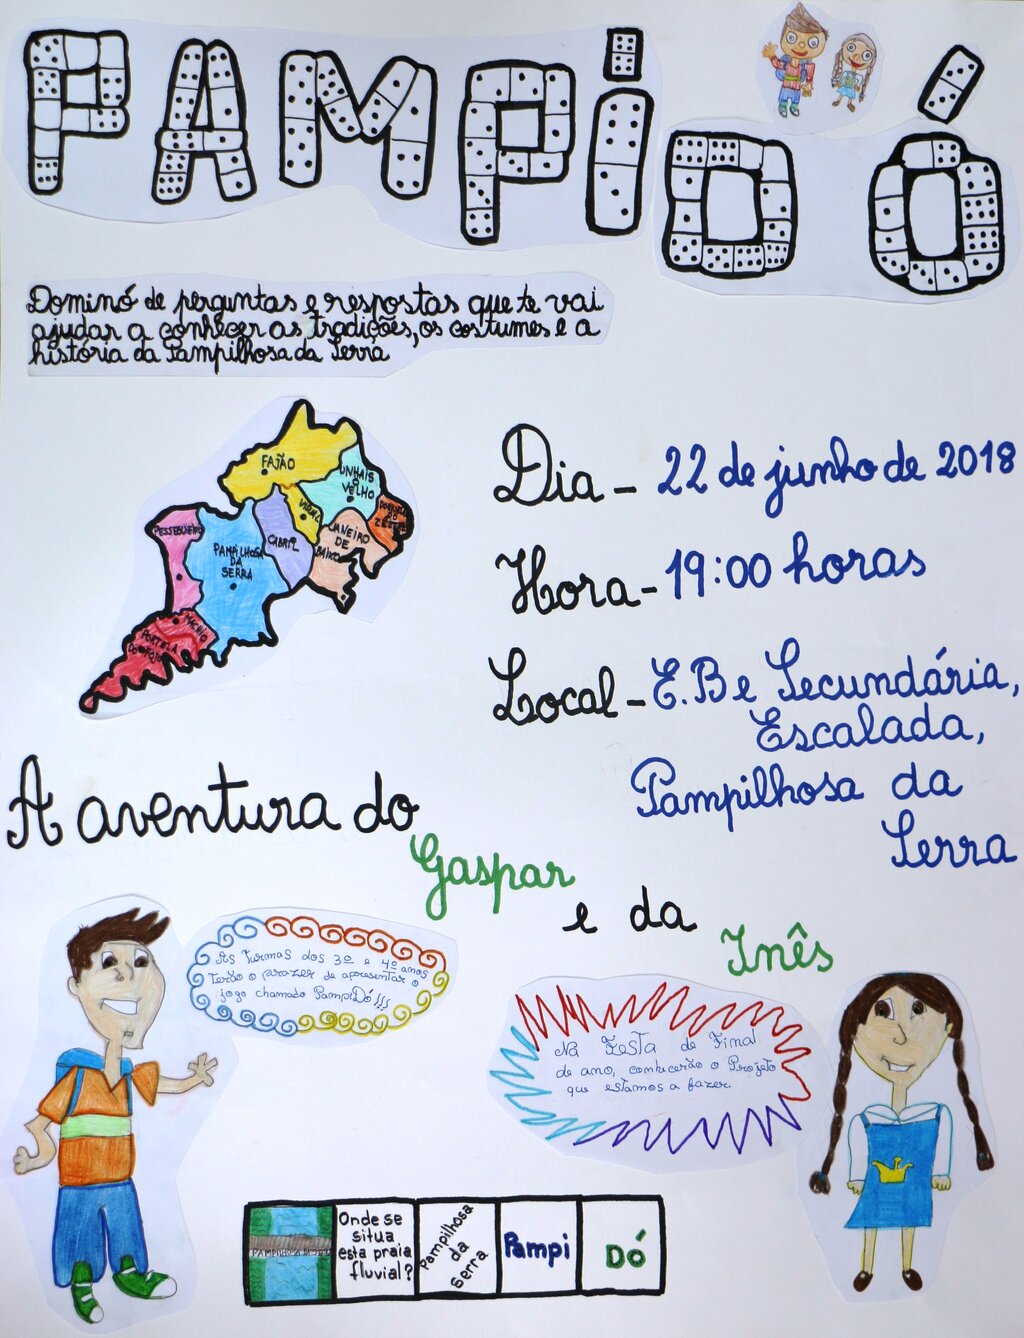 PAMPIDÓ
Dominó de perguntas e respostas que te vai
ajudar a conhecer as tradições, os costumes e a
história da Pampilhosa da Serra
FAJÃO
UNHAIS
O
VELHO
VIDUAL
DORNELAS
DO
ZÊZERE
PESSEGUEIRO
CABRIL
JANEIRO
DE
BAIXO
PAMPILHOSA
DA
SERRA
MACHIO
PORTELA
DO FOJO
Dia - 22 de junho de 2018
Hora - 19:00 horas
Local - E.B e Secundária,
Escalada,
Pampilhosa da
Serra
A aventura do
Gaspar
e da
Inês
As turmas dos 3º e 4º anos
terão o prazer de apresentar o
jogo chamado PampiDó!!!
Na Festa de Final
de ano, conhecerão o Projeto
que estamos a fazer
Onde se
situa
esta praia
fluvial?
Pampilhosa
da
Serra
Pampi
DÓ